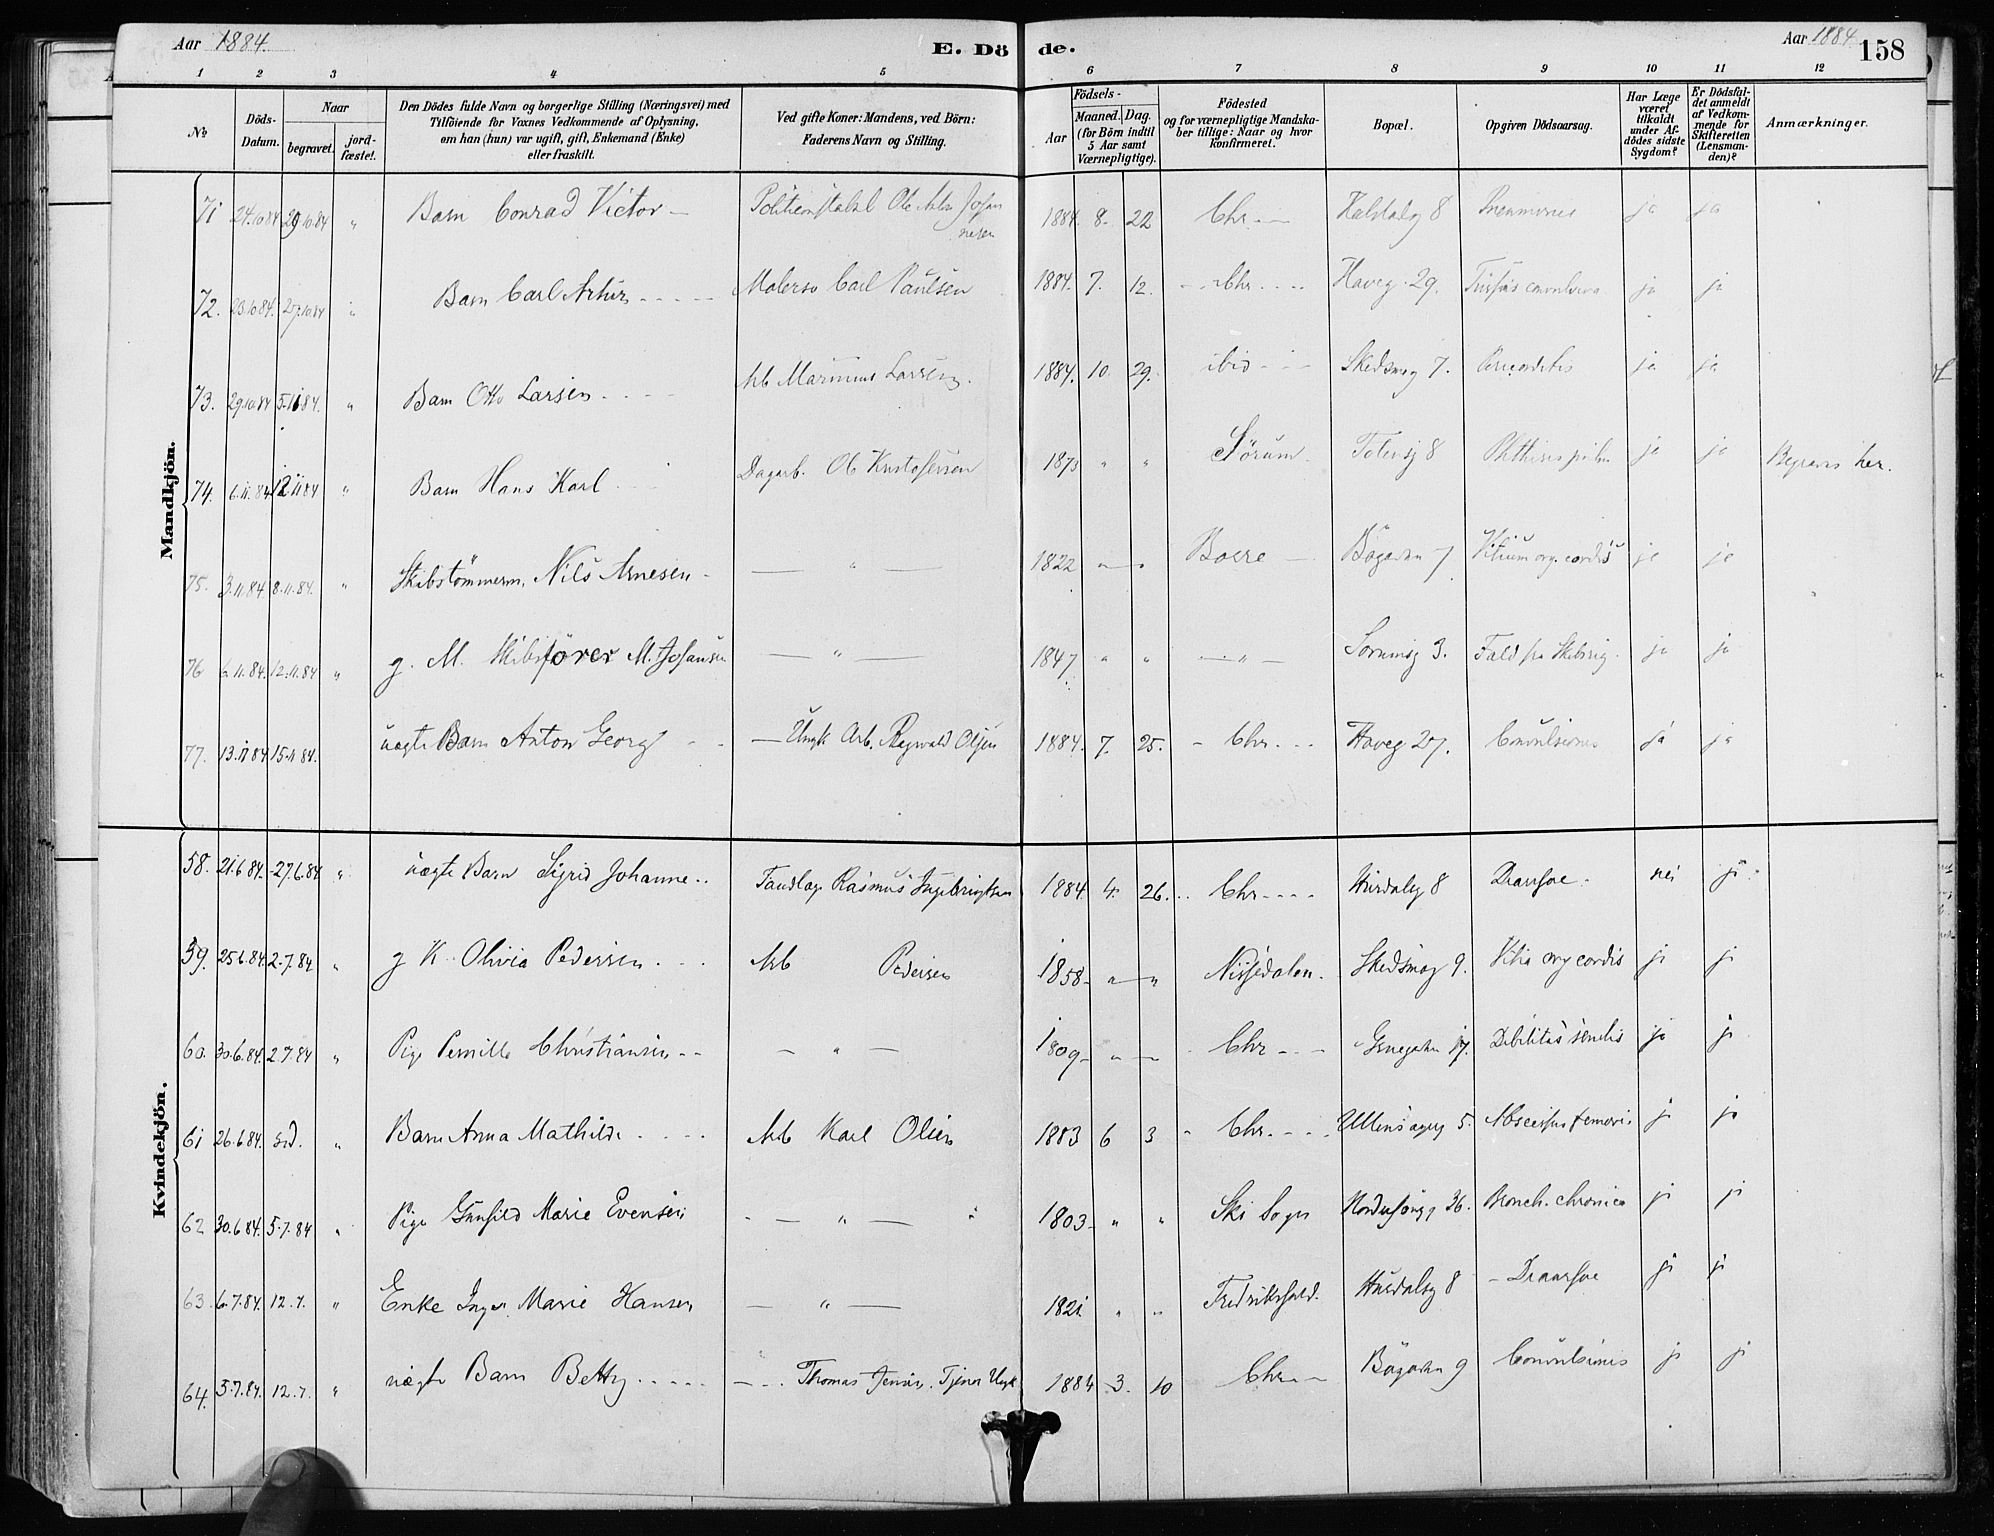 Aar 1884.
E. Döde.
Aar 1884
158
1 2 3 4 5 6 7 8 9 10 11 12
No
Döds-Datum.
Naar
begravet.
jordfæstet.
Den Dödes fulde Navn og borgerlige Stilling (Næringsvei) med
Tilföiende for Voxnes Vedkommende af Oplysning,
om han (hun) var ugift, gift, Enkemand (Enke)
eller fraskilt.
Ved gifte Koner: Mandens, ved Börn:
Faderens Navn og Stilling.
Födsels-
Aar
Maaned. Dag.
(for Börn indtil
5 Aar samt
Værnepligtige).
Födested
og for værnepligtige Mandskaber tillige: Naar og hvor
konfirmeret.
Bopæl.
Opgiven Dödsaarsag.
Har Læge
været
tilkaldt
under Afdödes sidste
Sygdom?
Er Dödsfaldet anmeldt
af Vedkommende for
Skifteretten
(Lensmanden)?
Anmærkninger.
Mandkjön.
71 24.10.84 29.10.84 " Barn Conrad Victor — Ole Johannesen 1884. 8. 22 Chr. — 8 Pneumonie ja ja
72. 23.10.84. 27.10.84 " Barn Carl Artur - - - - Carl Paulsen 1884. 7. 12. - Chr. - - - Haveg. 29. ja ja
73. 29.10.84 5.11.84. " Barn Otto Larsen - - - Arb Marinius Larsen. 1884. 10. 29. ibid - - - Skedsmog 7. Pericarditis ja ja
74. 6.11.84 12.11.84 " Barn Hans Karl - - Dagarb. Ole Kristofersen 1873 " " Sörum. Totensg 8 Phthisis pulm ja ja Begraves her.
75. 3.11.84. 8.11.84. " Skibstömmerm. Nils Arnesen - — " — 1822 " " Boere — Bögadn 7 Vitium org. cordis ja ja
76 6.11.84. 12.11.84 " g. M. Skibsförer M. Johansen — " — 1847 " " — " — Sorumsg 3. Fald fra Skibsrig. ja ja
77. 13.11.84 15.11.84. uægte Barn Anton Georg - - — Ungk Arb. Ragnvald Olsen 1884. 7. 25. - Chr. - - - Haveg 27. Convulsiones ja ja
Kvindekjön.
58. 21.6.84. 27.6.84 " uægte Barn Sigrid Johanne.. Rasmus Ingebrigtsen 1884. 4. 26. Chr. - - - Hurdalsg 8 nei ja
59. 25.6.84. 2.7.84 " g K. Olivia Pedersen - - - Arb Pedersen 1858 " " Nissedalen. Skedsmog 9. Vitia org cordis ja ja
60. 30.6.84. 2.7.84 " Pige Pernille Christiansen - - — " — 1809 " — - Chr. - - - 17. Debilitas senilis ja ja
61 26.6.84. " Barn Anna Mathilde - - - - Arb Karl Olsen 1883 6 3 - Chr. - - - Ullensagerg 5. Abscessus femoris ja ja
62 30.6.84. 5.7.84 " Pige Gunhild Marie Evensen - — " — 1803 " " Ski Sogn 36. Bronch. chronica ja ja
63. 6.7.84. 12.7. " Enke Inger Marie Hansen — " — 1821 " " Fredrikshald. Hurdalsg 8 ja ja
64. 5.7.84. 12.7. " uægte Barn Betty - - - - - - - - Thomas Jensen. Tjener Ungk 1884 3. 10 Chr. - - Bögadn 9 Convulsiones ja ja